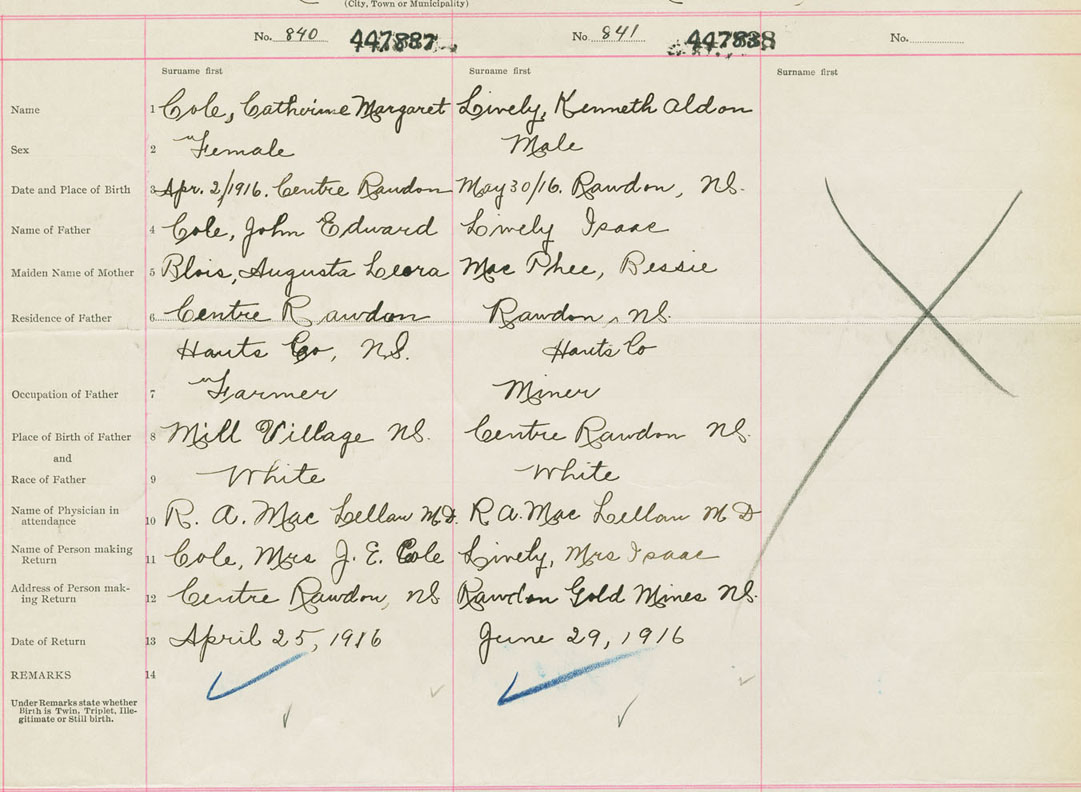 (City, Town or Municipality)
No. 840 447887 No. 841 447838 No.
Surname first Surname first Surname first
Name 1 Cole, Catherine Margaret Lively, Kenneth Aldon
Sex 2 Female Male
Date and Place of Birth 3 Apr. 2/1916. Centre Rawdon May 30/16. Rawdon, NS.
Name of Father 4 Cole, John Edward Lively Isaac
Maiden Name of Mother 5 Blois, Augusta Leora Mac Phee, Bessie
Residence of Father 6 Centre Rawdon Rawdon, NS.
Hants Co, N.S. Hants Co
Occupation of Father 7 Farmer Miner
Place of Birth of Father 8 Mill Village NS. Centre Rawdon NS.
and
Race of Father 9 White White
Name of Physician in
attendance 10 R. A. Mac Lellan M.D. R A. Mac Lellan M D
Name of Person making
Return 11 Cole, Mrs J. E. Cole Lively, Mrs Isaac
Address of Person mak-
ing Return 12 Centre Rawdon, NS Rawdon Gold Mines NS.
Date of Return 13 April 25, 1916 June 29, 1916
REMARKS 14
Under Remarks state whether
Birth is Twin, Triplet, Ille-
gitimate or Still birth.